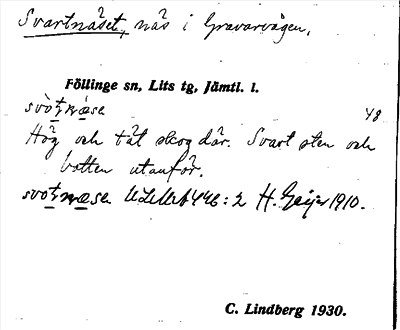 Svartnäset, näs i Gravarvågen.
Föllinge sn, Lits tg, Jämtl. l.
48
Hög och tät skog där. Svart sten och
botten utanför.
446: 2 H. Geijer 1910.
C. Lindberg 1930.